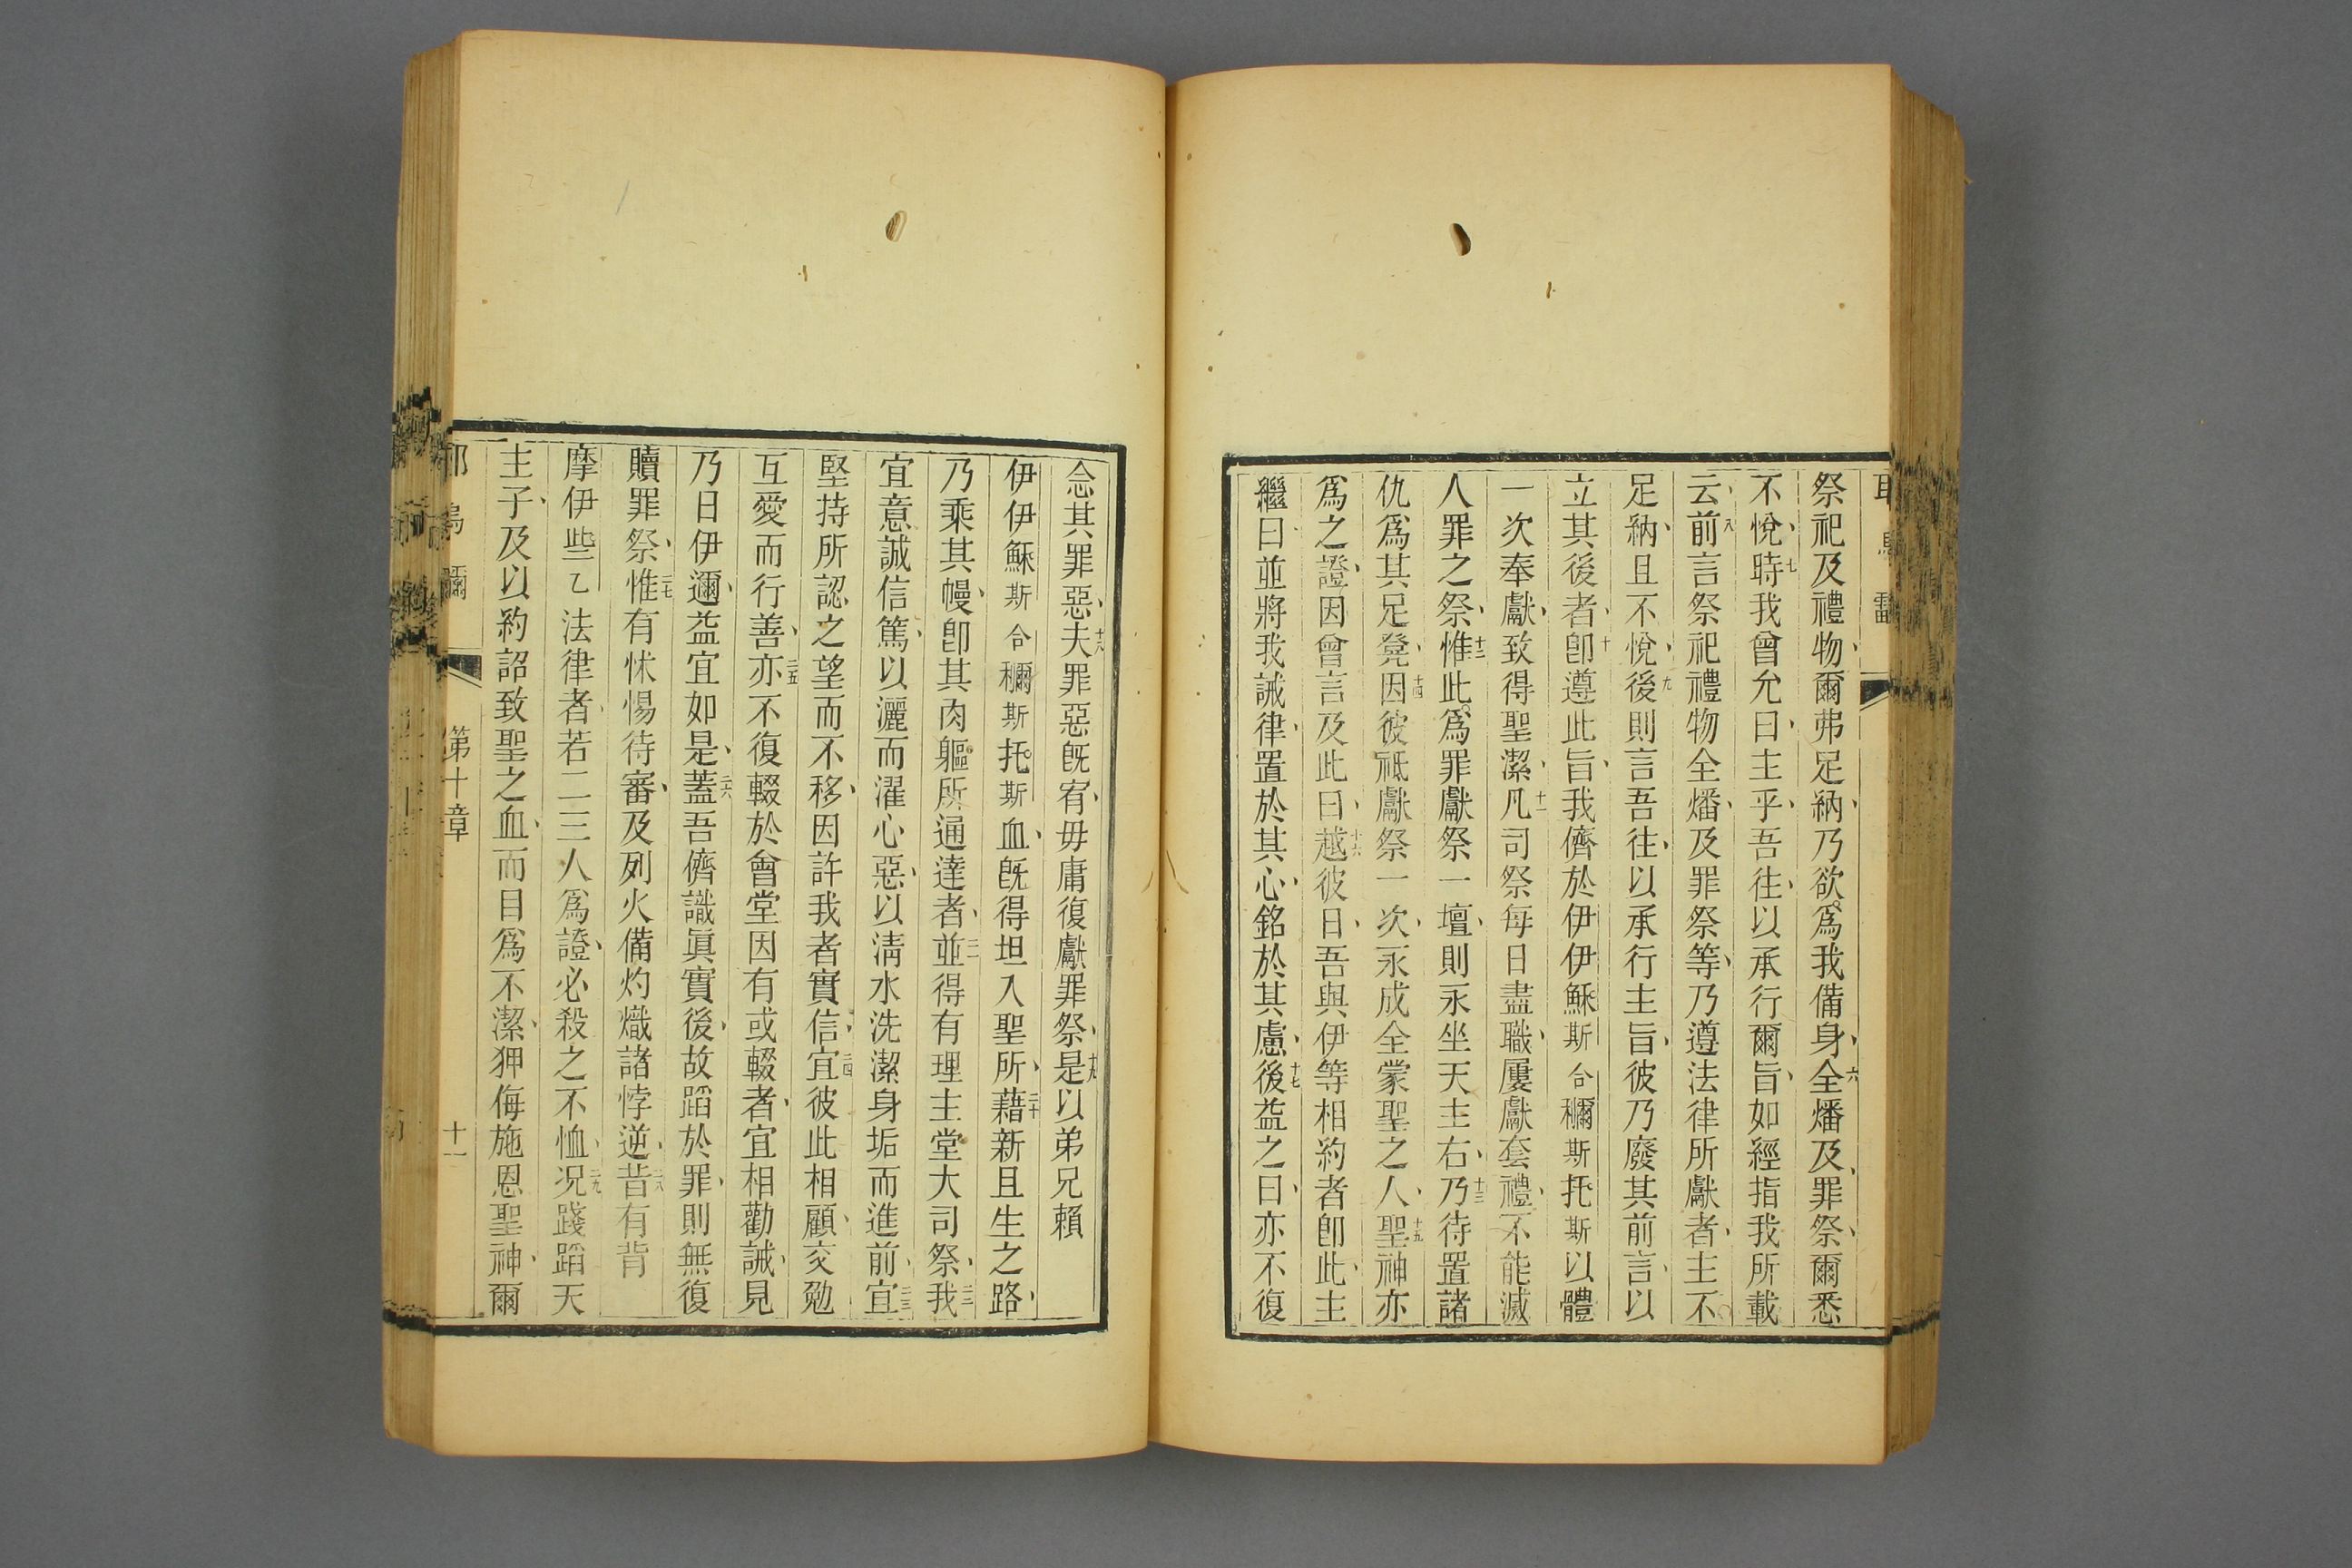 祭祀及禮物、爾弗足納、乃欲爲我備身、六全燔及、罪祭、爾悉
不悅、七時我曾允曰、主乎、吾往、以承行爾旨、如經指我所載
云、八前言祭祀禮物全燔、及罪祭等、乃遵法律所獻者、主不
足納、且不悅、九後則言吾往、以承行主旨、彼乃廢其前言、以
立其後者、十卽遵此旨、我儕於伊伊穌斯合穪斯托斯以體
一次奉獻、致得聖潔、十一凡司祭每日盡職、屢獻套禮、不能滅
人罪之祭、十二惟此爲罪獻祭一壇、則永坐天主右、十三乃待置諸
仇爲其足凳、十四因彼祗獻祭一次、永成全蒙聖之人、十五聖神亦
爲之證、因曾言及此曰、十六越彼日、吾與伊等相約者卽此、主
繼曰、並將我誡律、置於其心、銘於其慮、十七後益之曰、亦不復
念其罪惡、十八夫罪惡旣宥、毋庸復獻罪祭、十九是以弟兄賴
伊伊穌斯合穪斯托斯血、旣得坦入聖所、二十藉新且生之路、
乃乘其幔、卽其肉軀所通達者、二一並得有理主堂大司祭、二二我
宜意誠信篤、以灑而濯心惡、以淸水洗潔身垢而進前、二三宜
堅持所認之望而不移、因許我者實信、二四宜彼此相顧、交勉
互愛而行善、二五亦不復輟於會堂因有或輟者、宜相勸誡、見
乃日伊邇、益宜如是、二六蓋吾儕識眞實後、故蹈於罪、則無復
贖罪祭、二七惟有怵惕待審、及列火備灼熾諸悖逆、二八昔有背
摩伊些乙法律者、若二三人爲證、必殺之不恤、二九况踐蹈天
主子、及以約詔致聖之血、而目爲不潔、狎侮施恩聖神、爾
第十章 十一